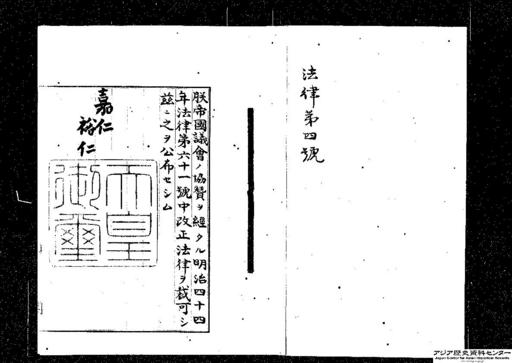 法律第四號
朕帝國議會ノ協贊ヲ經タル明治四十四
年法律第六十一號中改正法律ヲ裁可シ
茲ニ之ヲ公布セシム
嘉仁
裕仁
天皇
御璽
アジア歴史資料センター
Japan Center for Asian Historical Records